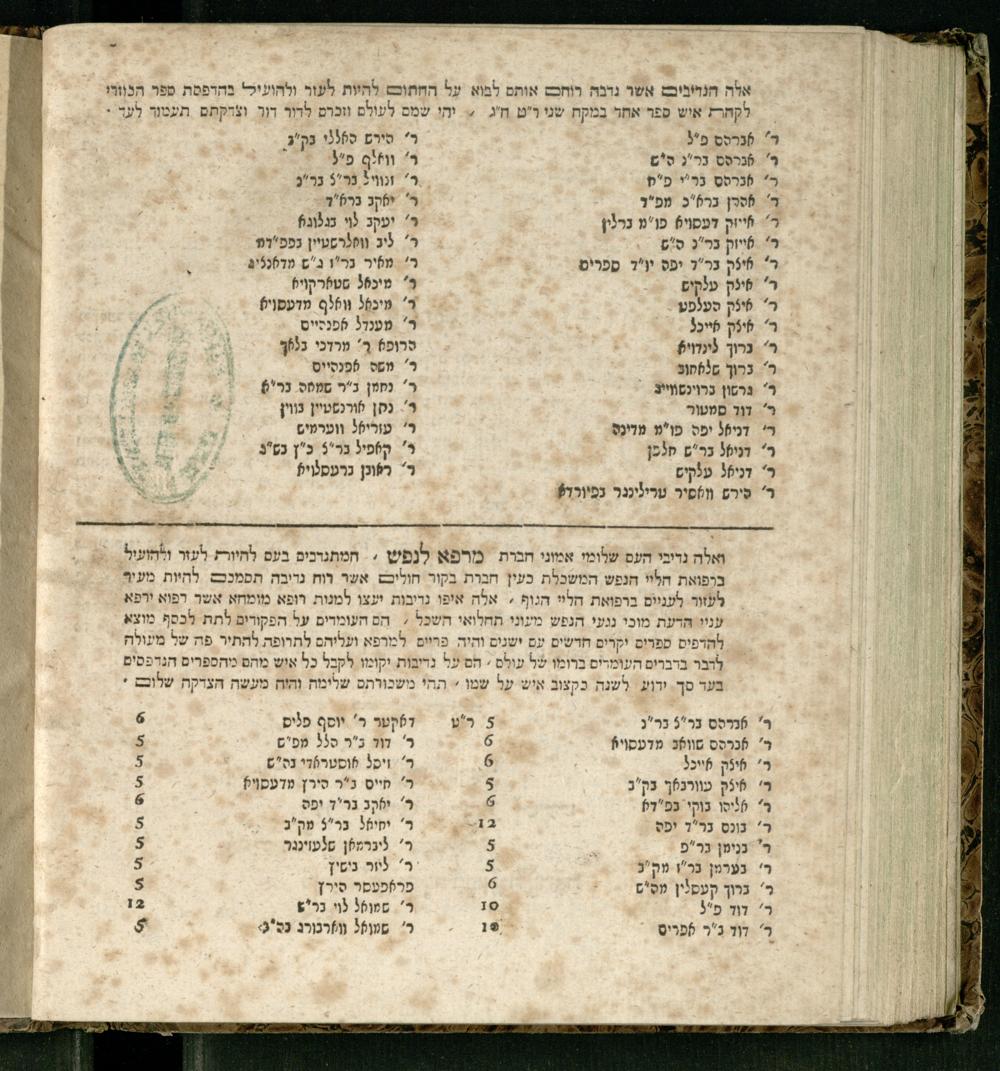 אלה הנדיבים אשר נדבה רוחם אותם לבוא על החתום להיות לעזר ולהועיל בהדפסת ספר הכוזרי
לקחת איש ספר אחד במקח שני ר"ט ח"ג , יהי שמם לעולם וזכרם לדור דור וצדקתם תעמוד לעד ·
ר' אברהם פ"ל
ר' אברהם בר"נ ה"ש
ר' אברהם בר"י פ"ח
ר' אהרן ברא"כ מפ"ד
ר' אייזק דעסויא פו"מ ברלין
ר' אייזק בר"נ ה"ש
ר' איצק בר"ד יפה יו"ד ספרים
ר' איצק עלקיש
ר' איצק העלפט
ר' איצק אייכל
ר' ברוך לינדויא
ר' ברוך שלאחוב
ר' גרשון ברוינשווייג
ר' דוד סמטור
ר' דניאל יפה פו"מ מדינה
ר' דניאל בר"ש חלפן
ר' דניאל עלקיש
ר' הירש וואסיר טרילינגר בפיורדא
ר' הירש האללי בק"ב
ר' וואלף פ"ל
ר' זנוויל בר"ל בר"נ
ר' יאקב ברא"ד
ר' יעקב לוי בגלוגא
ר' ליב וואלרשטיין בפפ"דמ
ר' מאיר בר"ז ג"ש מדאנליג
ר' מיכאל שטארקויא
ר' מיכאל וואלף מדעסויא
ר' מענדל אפנהיים
הרופא ר' מרדכי בלאך
ר' משה אפנהיים
ר' נחמן ב"ר שמחה בר"א
ר' נתן אורנשטיין בווין
ר' עזריאל ווערמיש
ר' קאפיל בר"ל כ"ץ בש"ג
ר' ראובן ברעסלויא
ואלה נדיבי העם שלומי אמוני חברת מרפא לנפש , המתנדבים בעם להיות לעזר ולהועיל
ברפואת חליי הנפש המשכלת כעין חברת בקור חולים אשר רוח נדיבה תסמכם להיות מעיר
לעזור לעניים ברפואת חליי הגוף , אלה איפו נדיבות יעצו למנות רופא מומחא אשר רפוא ירפא
עניי הדעת מוכי נגעי הנפש מעוני תחלואי השכל , הם העומדים על הפקודים לתת לכסף מוצא
להדפיס ספרים יקרים חדשים עם ישנים והיה פריים למרפא ועליהם לתרופה להתיר פה של מעולה
לדבר בדברים העומדים ברומו של עולם , הם על נדיבות יקומו לקבל כל איש מהם מהספרים הנדפסים
בעד סך ידוע לשנה כקצוב איש על שמו , תהי משכורתם שלימה והיה מעשה הצדקה שלום ·
ר' אברהם בר"ל בר"נ 5 ר"ט
ר' אברהם שוואב מדעסויא 6
ר' איצק אייכל 6
ר' איצק טוורבאך בק"ב 5
ר' אליהו בוקי בפ"דא 6
ר' בונם בר"ד יפה 12
ר' בנימן בר"פ 5
ר' בערמן בר"ז מק"ב 5
ר' ברוך קעסלין מה"ש 6
ר' דוד פ"ל 10
ר' דוד ב"ר אפרים 10
דאקטר ר' יוסף פליס 6
ר' דוד ב"ר הלל מפ"ש 5
ר' זיסל אוסטראדי בה"ש 5
ר' חיים ב"ר הירץ מדעסויא 5
ר' יאקב בר"ד יפה 6
ר' יחיאל בר"ל מק"ב 5
ר' ליברמאן שלעזינגר 5
ר' ליזר בישיץ 5
פראפעסר הירץ 5
ר' שמואל לוי בר"ש 12
ר' שמואל ווארבורג בה"ב 5